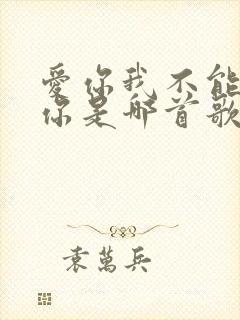 愛你我不能
你是哪首歌
袁萬兵